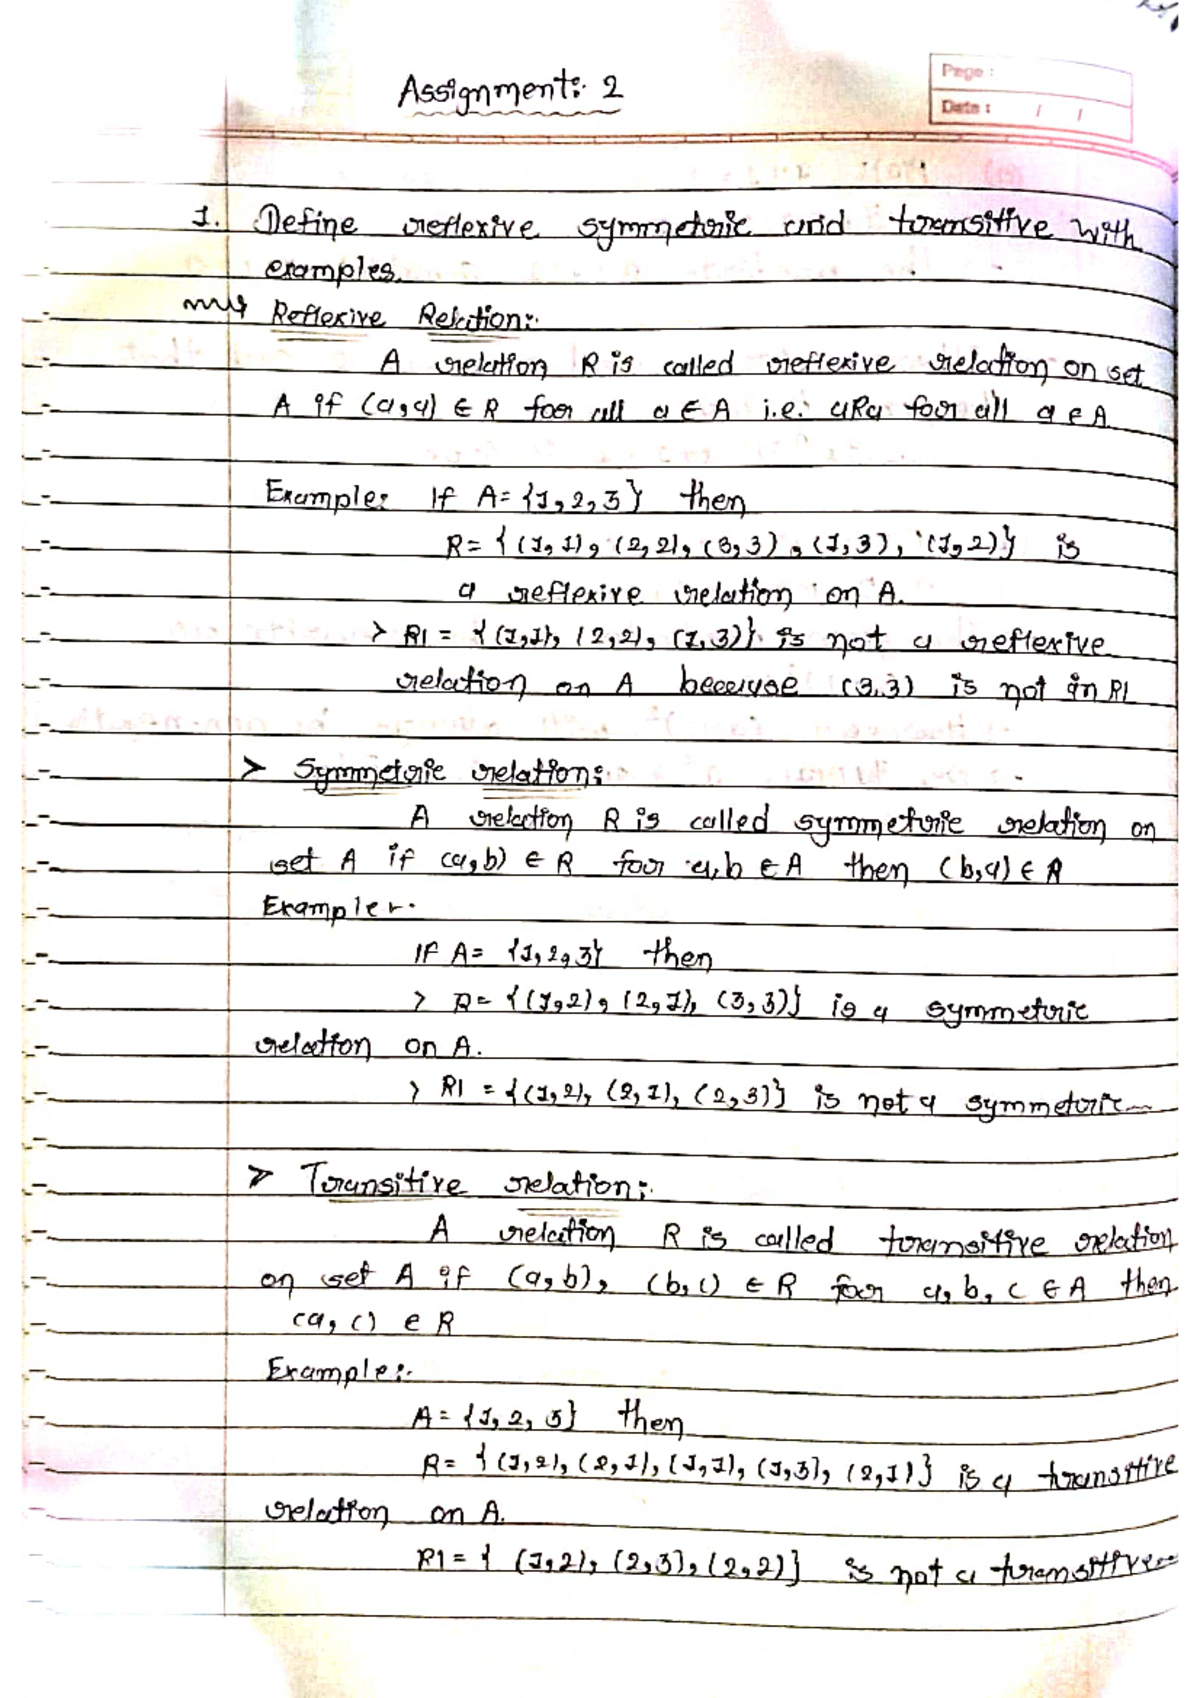 Assignment: 2
Page :
Date : / /
1. Define reflexive symmetric and transitive with
examples.
Reflexive Relation:
A relation R is called reflexive relation on set
A if (a,a) ∈ R for all a ∈ A i.e. aRa for all a ∈ A
Example: If A= {1,2,3} then
R= {(1,1), (2,2), (3,3), (1,3), (1,2)} is
a reflexive relation on A.
> R1 = {(1,1), (2,2), (1,3)} is not a reflexive
relation on A because (3,3) is not in R1
> Symmetric relation:
A relation R is called symmetric relation on
set A if (a,b) ∈ R for a,b ∈ A then (b,a) ∈ R
Example:-
If A= {1,2,3} then
> R= {(1,2), (2,1), (3,3)} is a symmetric
relation on A.
> R1 = {(1,2), (2,1), (2,3)} is not a symmetric
> Transitive relation:
A relation R is called transitive relation
on set A if (a,b), (b,c) ∈ R for a,b,c ∈ A then
(a,c) ∈ R
Example:-
A= {1, 2, 3} then
R= {(1,2), (2,1), (1,1), (1,3), (2,1)} is a transitive
relation on A.
R1= { (1,2), (2,3), (2,2)} is not a transitive